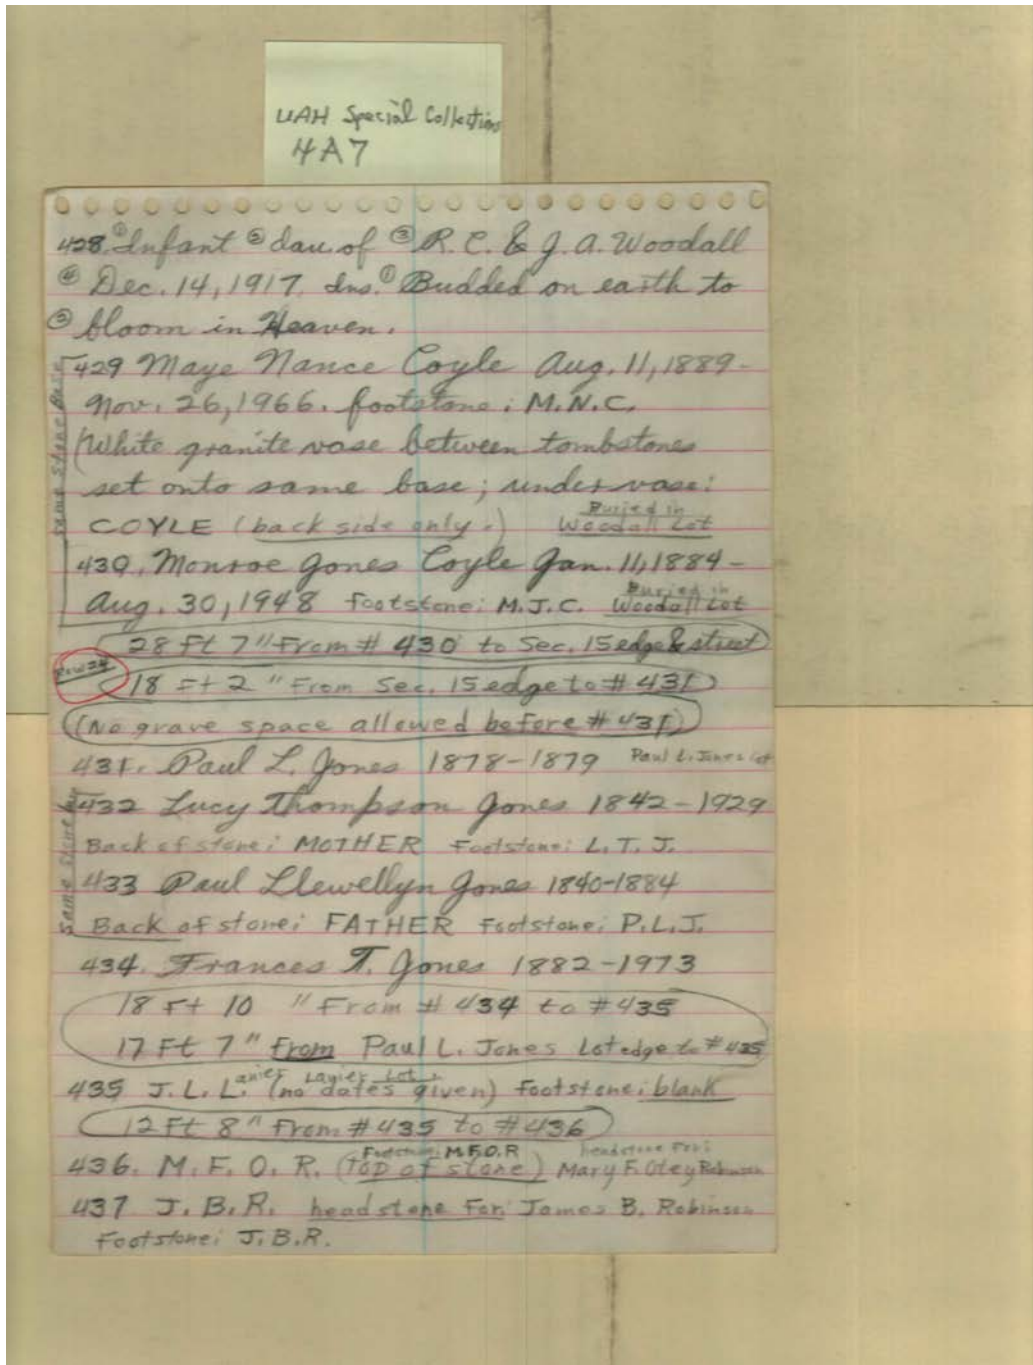 UAH Special Collections
4A7
428. ① Infant ② dau. of ③ R. C. & J. A. Woodall
④ Dec. 14, 1917. Ins. ① Budded on earth to
② bloom in Heaven.
429 Maye Nance Coyle Aug. 11, 1889-
Nov. 26, 1966. footstone: M.N.C.
(White granite vase between tombstones
set onto same base; under vase:
COYLE (back side only.) Buried in Woodall Lot
Same Stone Base
430. Monroe Jones Coyle Jan. 11, 1884-
Aug. 30, 1948 Footstone: M.J.C. Buried in Woodall Lot
28 Ft 7" From # 430 to Sec. 15 edge & street
Row 24
18 Ft 2" From Sec. 15 edge to # 431
(No grave space allowed before # 431)
431. Paul L. Jones 1878-1879 Paul L. Jones Lot
432 Lucy Thompson Jones 1842-1929
Back of stone: MOTHER Footstone: L. T. J.
Same Stone
433 Paul Llewellyn Jones 1840-1884
Back of stone: FATHER Footstone: P.L.J.
434. Frances T. Jones 1882-1973
18 Ft 10 " From # 434 to # 435
17 Ft 7" from Paul L. Jones Lot edge to # 435
435 J. L. Lanier Lanier Lot. (no dates given) Footstone: blank
12 Ft 8" From # 435 to # 436
Footstone: M.F.O.R headstone For:
436. M. F. O. R. (top of stone) Mary F. Otey Robinson
437 J. B. R. headstone For: James B. Robinson
Footstone: J.B.R.